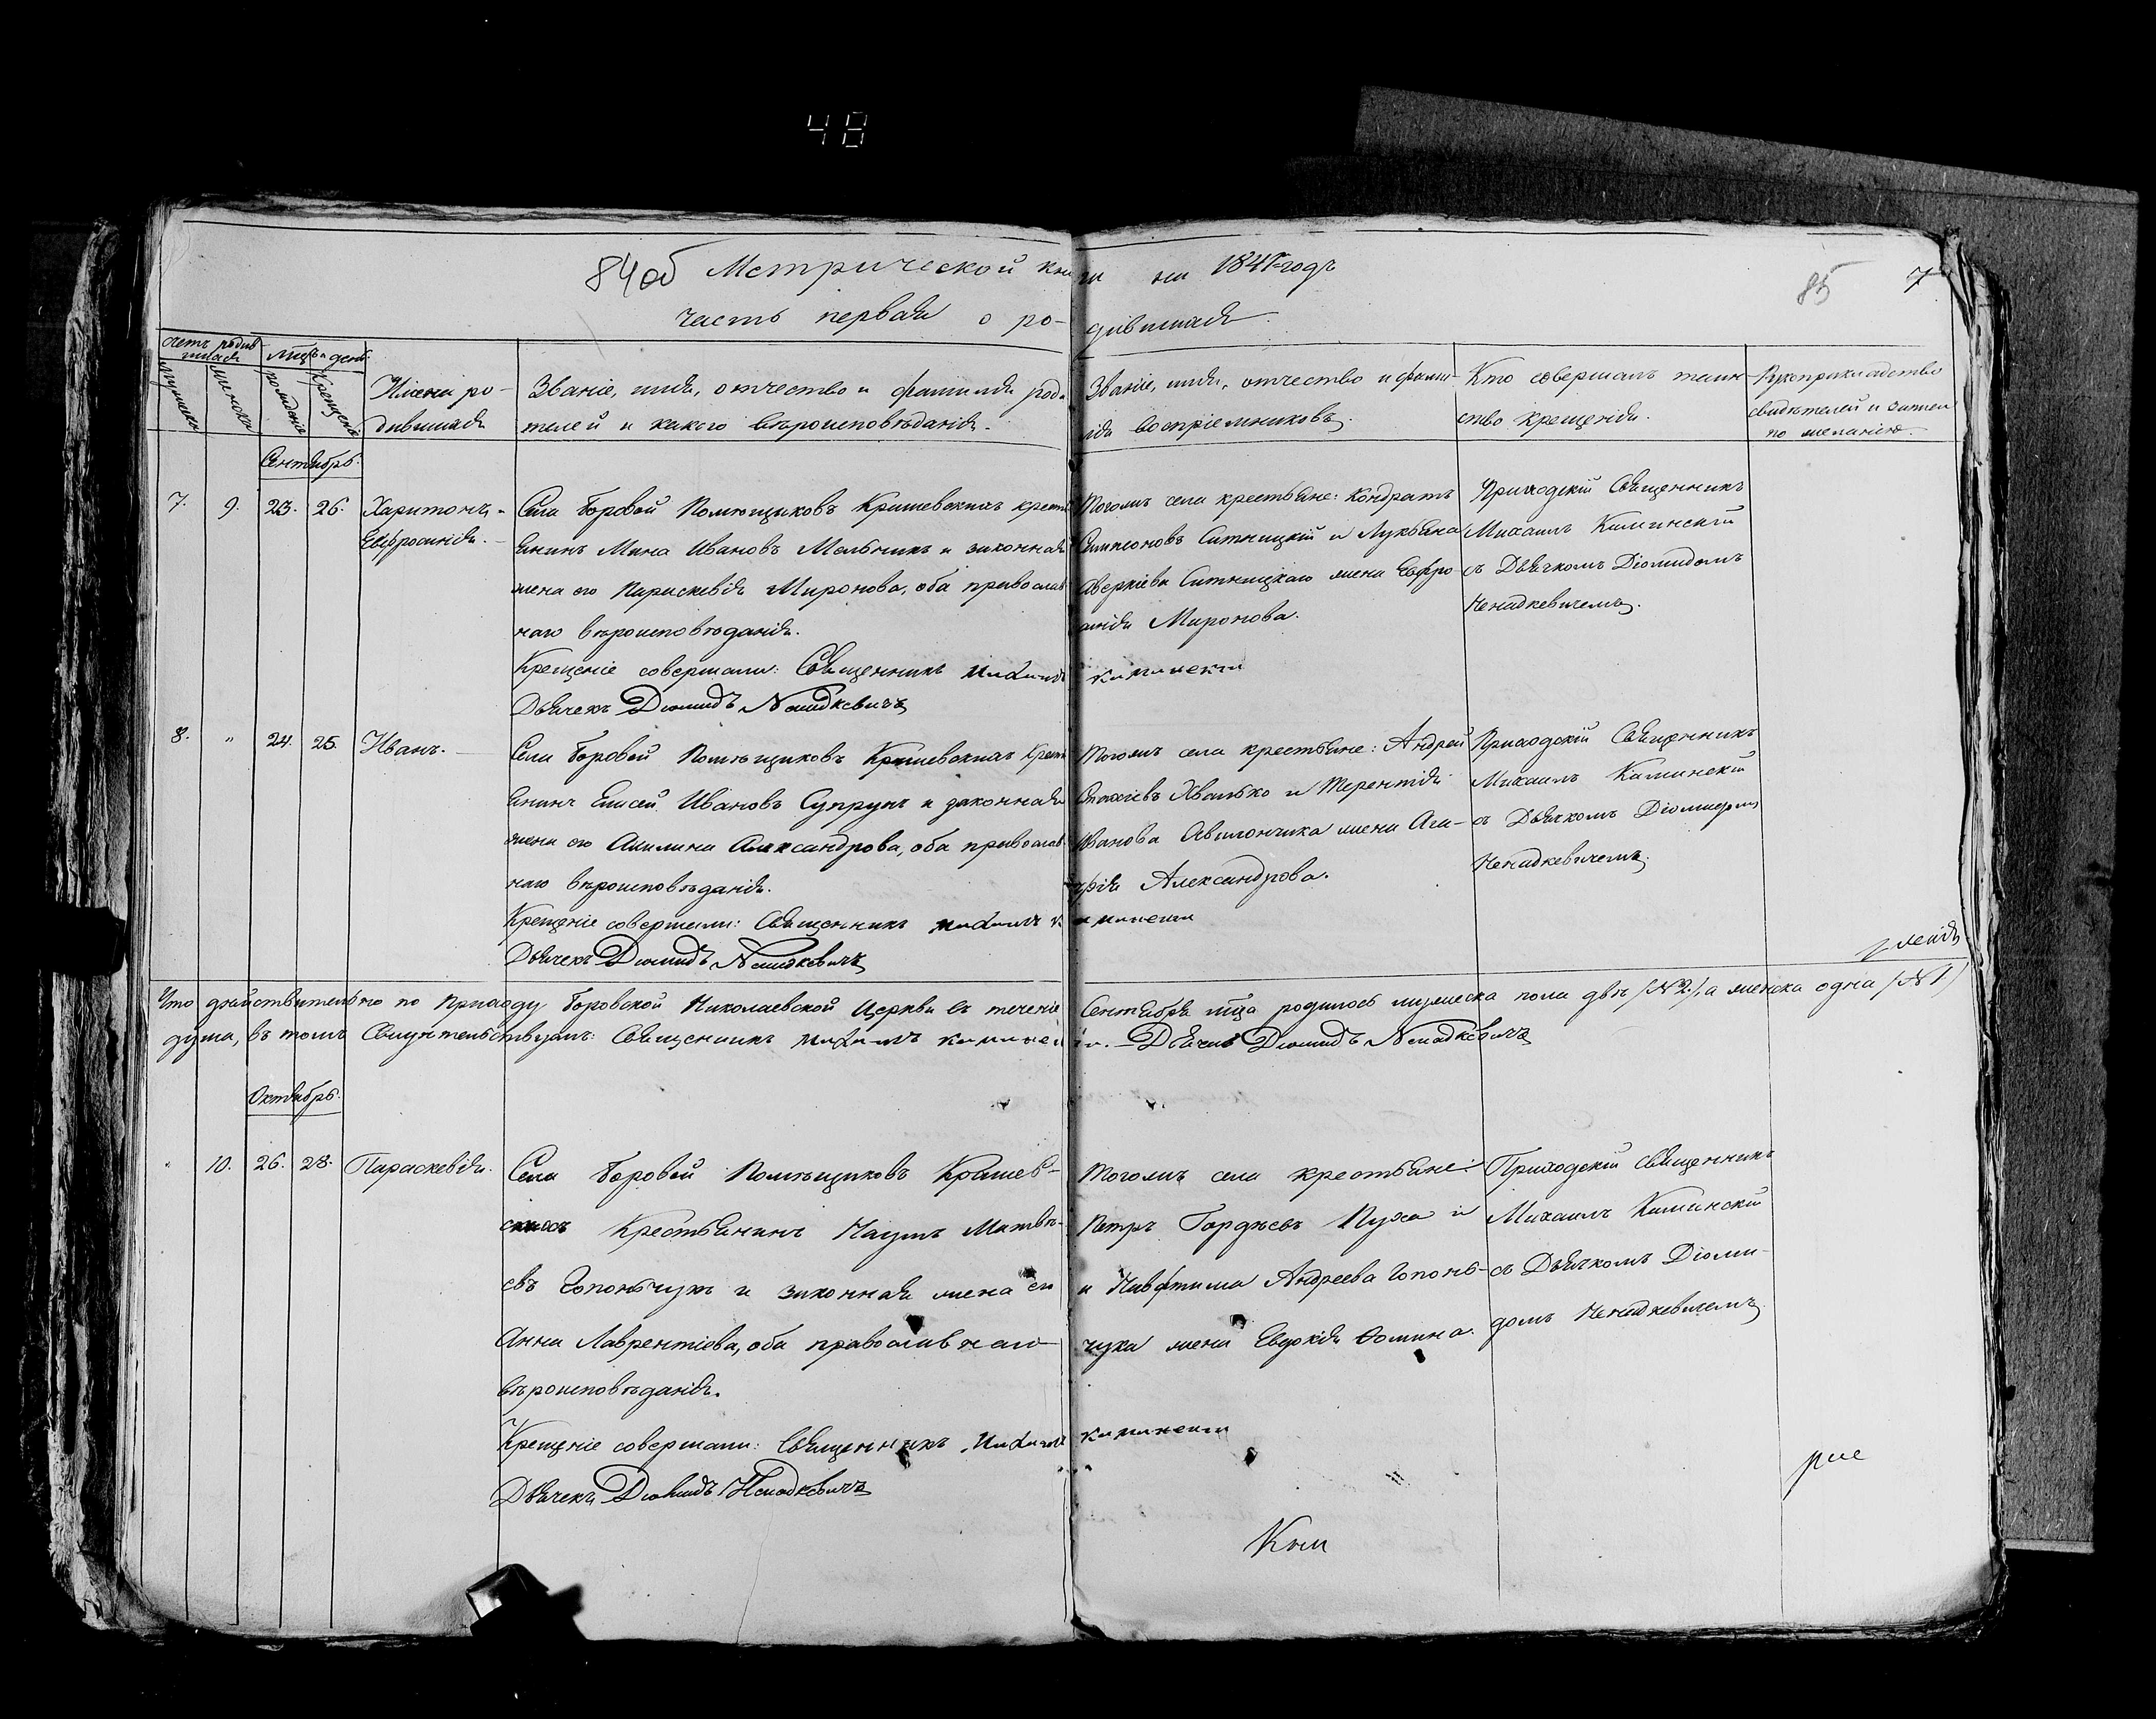 48
84 об Метрической книги на 1841 годъ
85 7
часть первая о родившихся
Счетъ родившихся
Мѣсяцъ и день
мужеска
женска
рожденіе
крещеніе
Имена ро-
дившихся
Званіе, имя, отчество и фамилія роди
телей и какого вѣроисповѣданія.
Званіе, имя, отчество и фами-
лія воспріемниковъ.
Кто совершалъ таин-
ство крещенія.
Рукоприкладство
свидѣтелей и записи
по желанію.
Сентябрь.
7. 9. 23. 26. Харитонъ,
Евфросинія.
Села Боровой Помѣщиковъ Кришевскихъ кресть
янинъ Мина Ивановъ Мельникъ и законная
жена его Параскевія Миронова, оба православ
наго вѣроисповѣданія.
Крещеніе совершали: Священникъ Михаилъ Каминскій
Дьячекъ Діомидъ Ненадкевичъ
Тогожъ села крестьяне: Кондратъ
Симеоновъ Ситницкій и Лукьяна
Аверкіева Ситницкаго жена Евфро-
синія Миронова.
Приходскій Священникъ
Михаилъ Каминскій
съ Дьячкомъ Діомидомъ
Ненадкевичемъ.
8. " 24. 25. Иванъ.
Села Боровой Помѣщиковъ Кришевскихъ Кресть
янинъ Елисей Ивановъ Супрунъ и законная
жена его Акилина Александрова, оба православ
наго вѣроисповѣданія.
Крещеніе совершали: Священникъ Михаилъ Каминскій
Дьячекъ Діомидъ Ненадкевичъ
Тогожъ села крестьяне: Андрей
Хвалько и Терентія
Иванова жена Ага-
фія Александрова.
Приходскій Священникъ
Михаилъ Каминскій
съ Дьячкомъ Діомидомъ
Ненадкевичемъ.
Что дѣйствительно по приходу Боровской Николаевской Церкви въ теченіе Сентября мца родилось мужеска пола двѣ (№ 2.), а женска одна (№ 1)
душа, въ томъ Свидѣтельствуемъ: Священникъ Михаилъ Каминскій. Дьячекъ Діомидъ Ненадкевичъ
Октябрь.
" 10. 26. 28. Параскевія.
Села Боровой Помѣщиковъ Кришев-
скихъ Крестьянинъ Наумъ Матвѣ-
евъ Гопоньчукъ и законная жена его
Анна Лаврентіева, оба православнаго
вѣроисповѣданія.
Крещеніе совершали: Священникъ Михаилъ Каминскій
Дьячекъ Діомидъ Ненадкевичъ
Тогожъ села крестьяне:
Петръ Гордѣевъ Пуха и
и Андреева Гопонь-
чука жена Евдокія Ѳомина.
Приходскій Священникъ
Михаилъ Каминскій
съ Дьячкомъ Діоми-
домъ Ненадкевичемъ.